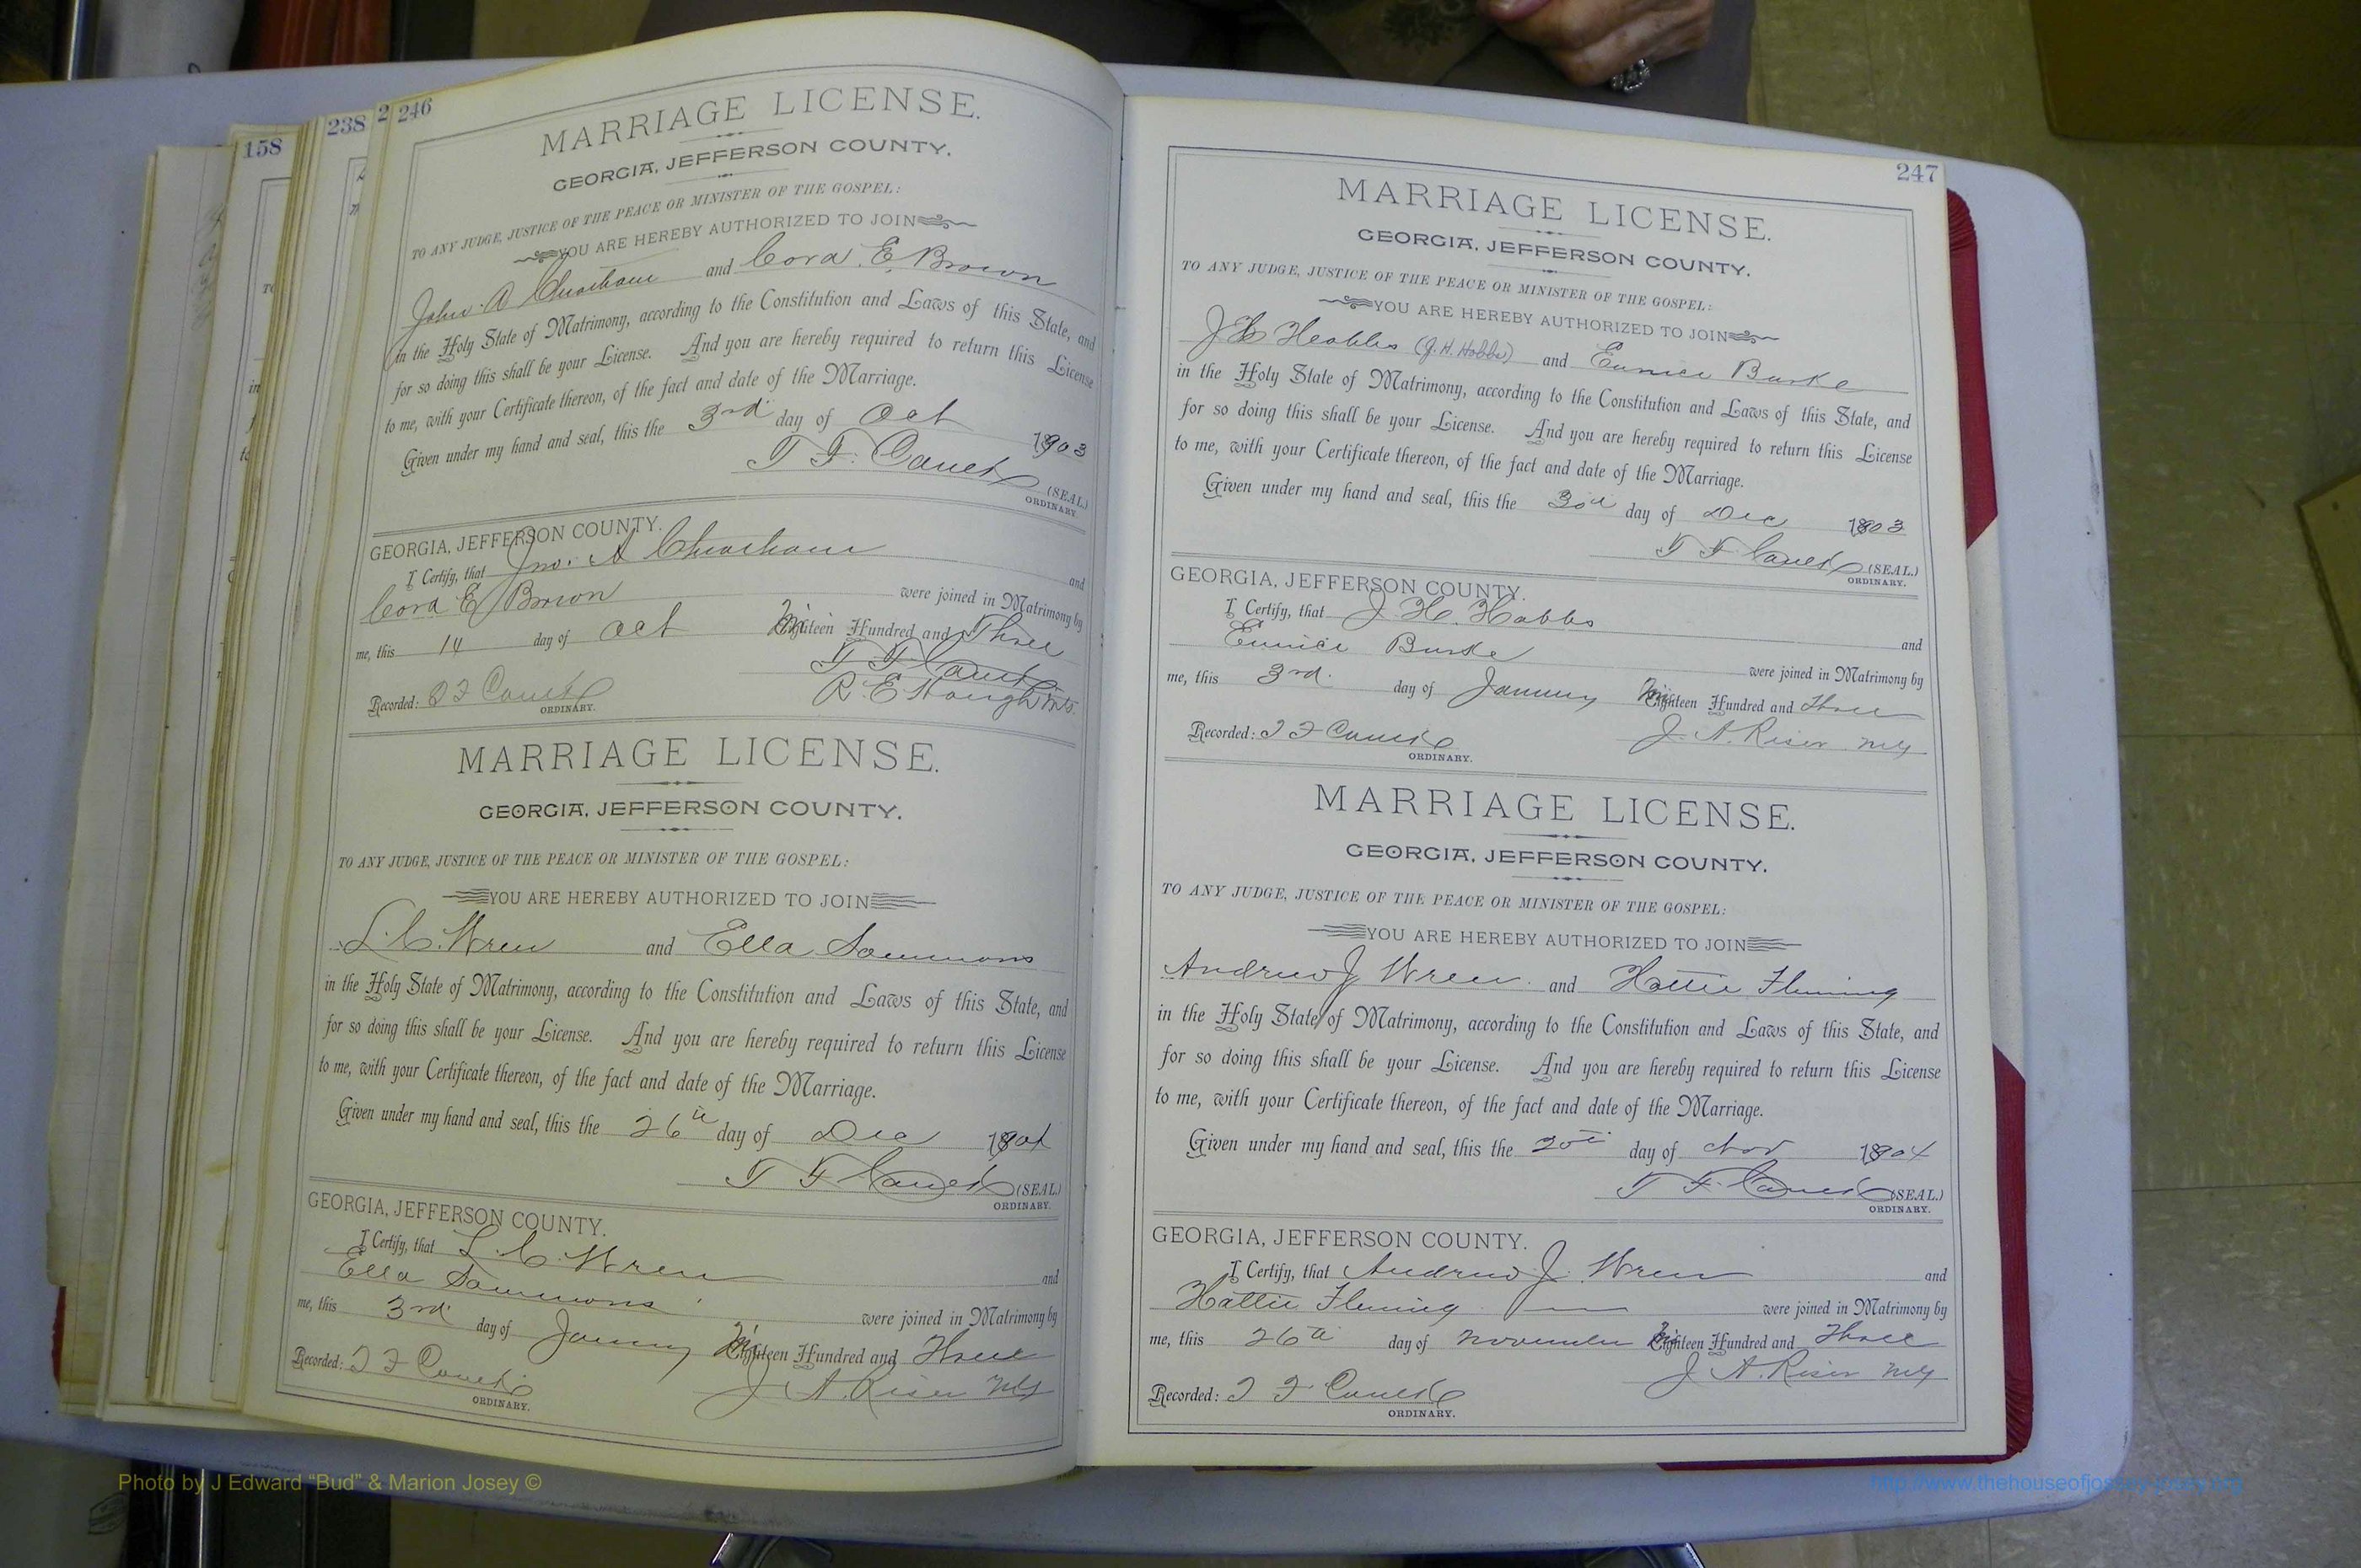 158
238
2
246
MARRIAGE LICENSE.
GEORGIA, JEFFERSON COUNTY.
TO ANY JUDGE, JUSTICE OF THE PEACE OR MINISTER OF THE GOSPEL:
YOU ARE HEREBY AUTHORIZED TO JOIN
John A and Cora E. Brown
in the Holy State of Matrimony, according to the Constitution and Laws of this State, and
for so doing this shall be your License. And you are hereby required to return this License
to me, with your Certificate thereon, of the fact and date of the Marriage.
Given under my hand and seal, this the 3rd day of Oct 1903
T F (SEAL.)
ORDINARY.
GEORGIA, JEFFERSON COUNTY.
I Certify, that Jno. A and
Cora E Brown were joined in Matrimony by
me, this 14 day of Oct Hundred and Three
T F
R. E
Recorded: ORDINARY.
MARRIAGE LICENSE.
GEORGIA, JEFFERSON COUNTY.
TO ANY JUDGE, JUSTICE OF THE PEACE OR MINISTER OF THE GOSPEL:
YOU ARE HEREBY AUTHORIZED TO JOIN
L. C. Wren and Ella Sammons
in the Holy State of Matrimony, according to the Constitution and Laws of this State, and
for so doing this shall be your License. And you are hereby required to return this License
to me, with your Certificate thereon, of the fact and date of the Marriage.
Given under my hand and seal, this the 26th day of Dec
T F (SEAL.)
ORDINARY.
GEORGIA, JEFFERSON COUNTY.
I Certify, that L. C. Wren and
Ella Sammons were joined in Matrimony by
me, this 3rd day of January Hundred and Three
J. A. Riser MG
Recorded: ORDINARY.
247
MARRIAGE LICENSE.
GEORGIA, JEFFERSON COUNTY.
TO ANY JUDGE, JUSTICE OF THE PEACE OR MINISTER OF THE GOSPEL:
YOU ARE HEREBY AUTHORIZED TO JOIN
J H Hobbs (J. H. Hobbs) and Eunice Burke
in the Holy State of Matrimony, according to the Constitution and Laws of this State, and
for so doing this shall be your License. And you are hereby required to return this License
to me, with your Certificate thereon, of the fact and date of the Marriage.
Given under my hand and seal, this the day of Dec 1903
T F (SEAL.)
ORDINARY.
GEORGIA, JEFFERSON COUNTY.
I Certify, that J. H. Hobbs and
Eunice Burke were joined in Matrimony by
me, this 3rd. day of January Hundred and Three
J. A. Riser MG
Recorded: ORDINARY.
MARRIAGE LICENSE.
GEORGIA, JEFFERSON COUNTY.
TO ANY JUDGE, JUSTICE OF THE PEACE OR MINISTER OF THE GOSPEL:
YOU ARE HEREBY AUTHORIZED TO JOIN
Andrew J Wren and Hattie Fleming
in the Holy State of Matrimony, according to the Constitution and Laws of this State, and
for so doing this shall be your License. And you are hereby required to return this License
to me, with your Certificate thereon, of the fact and date of the Marriage.
Given under my hand and seal, this the 20th day of Nov 1904
T F (SEAL.)
ORDINARY.
GEORGIA, JEFFERSON COUNTY.
I Certify, that Andrew J. Wren and
Hattie Fleming were joined in Matrimony by
me, this 26th day of November Hundred and Three
J A. Riser MG
Recorded: ORDINARY.
Photo by J Edward “Bud” & Marion Josey ©
http://www.thehouseofjossey-josey.org